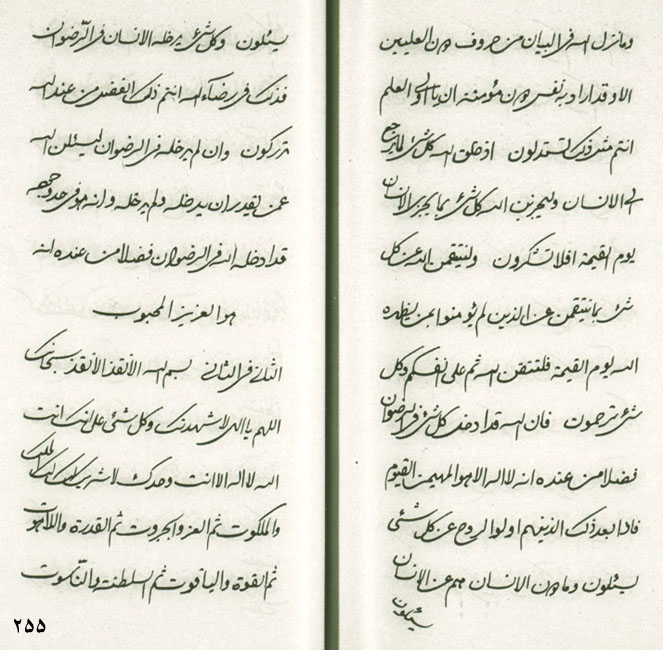 وما نزل الله في البيان من حروف من العليين
الا وقد اراد به نفس من مؤمنة ان يا اولي العلم
انتم مثل ذلك لتستدلون اذ خلق الله كل شئ لما يرجع
الى الانسان وليجزين الله كل شئ بما يجزي الانسان
يوم القيمة افلا تشكرون ولينتقمن الله عن كل
شئ بما ينتقمن عن الذين لم يؤمنوا بمن يظهره
الله يوم القيمة فلتتقن الله ثم على انفسكم وكل
شئ ترحمون فان الله قد ادخل كل شئ في الرضوان
فضلا من عنده انه لا اله الا هو المهيمن القيوم
فاذا بعد ذلك الذينهم اولوا الروح عن كل شئ
يسئلون وما دون الانسان هم عن الانسان
يسئلون
يسئلون وكل شئ يدخله الانسان في الرضوان
فذلك في رضاء الله انتم ذلك الفضل من عند الله
تدركون وان لم يدخله في الرضوان ليسئلن الله
عمن يقدر ان يدخله ولم يدخله وانه هو في حد وجهه
قد ادخله الله في الرضوان فضلا من عنده انه
هو العزيز المحبوب
الثاني في الثاني بسم الله الأنقذ الأنقذ سبحانك
اللهم يا الهي لاشهدنك وكل شئ على انك انت
الله لا اله الا انت وحدك لا شريك لك لك الملك
والملكوت ثم العز والجبروت ثم القدرة واللاهوت
ثم القوة والياقوت ثم السلطنة والناسوت
٢٥٥